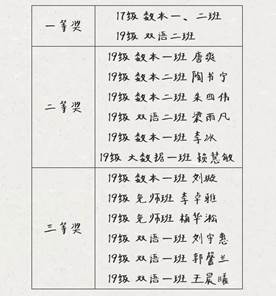 一等奖
17级 数本一、二班
19级 双语二班
二等奖
19级 数本一班 唐爽
19级 数本二班 陶书宁
19级 数本二班 朱四伟
19级 双语二班 梁雨凡
19级 数本一班 李冰
19级 大数据一班 顾慧敏
三等奖
19级 数本一班 刘璇
19级 免师班 李卓雅
19级 免师班 梅华淞
19级 双语一班 刘宁惠
19级 双语一班 郭馨兰
19级 双语一班 王晨曦